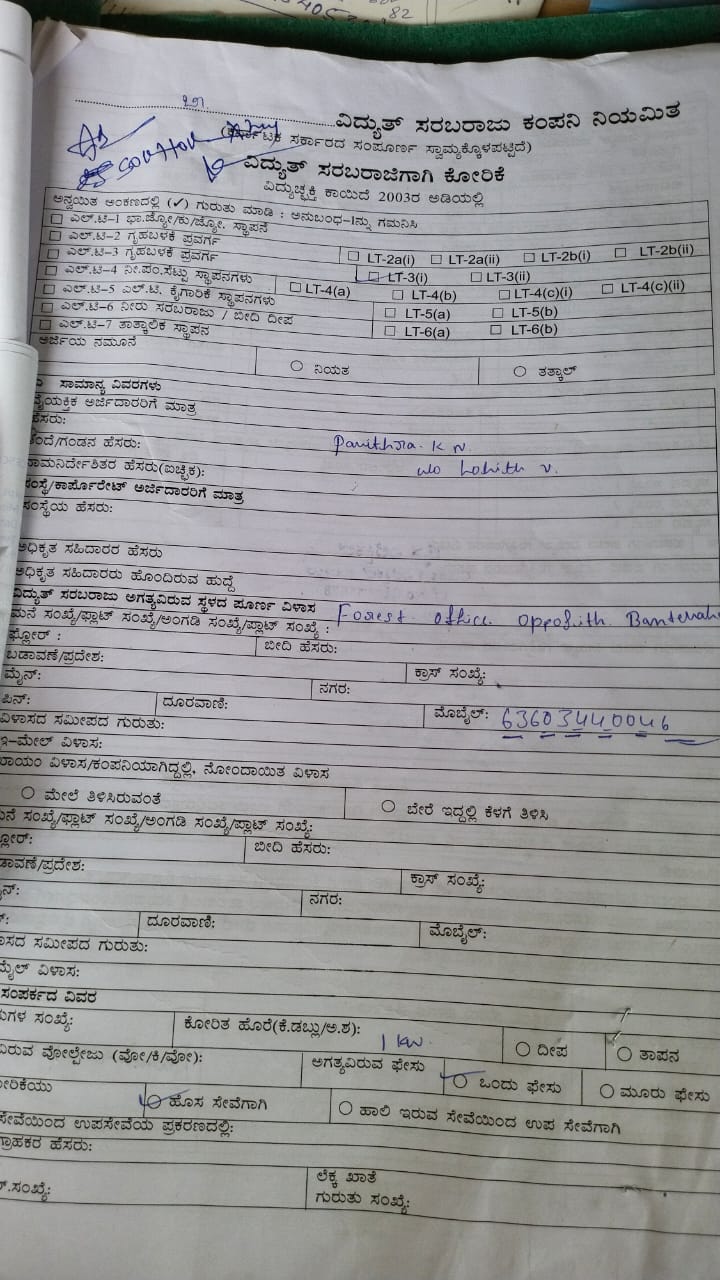 82
ವಿದ್ಯುತ್ ಸರಬರಾಜು ಕಂಪನಿ ನಿಯಮಿತ
(ಕರ್ನಾಟಕ ಸರ್ಕಾರದ ಸಂಪೂರ್ಣ ಸ್ವಾಮ್ಯಕ್ಕೊಳಪಟ್ಟಿದೆ)
ವಿದ್ಯುತ್ ಸರಬರಾಜಿಗಾಗಿ ಕೋರಿಕೆ
ವಿದ್ಯುಚ್ಛಕ್ತಿ ಕಾಯಿದೆ 2003ರ ಅಡಿಯಲ್ಲಿ
ಅನ್ವಯಿತ ಅಂಕಣದಲ್ಲಿ (✓) ಗುರುತು ಮಾಡಿ : ಅನುಬಂಧ-1ನ್ನು ಗಮನಿಸಿ
ಎಲ್.ಟಿ-1 ಭಾ.ಜ್ಯೋ/ಕು/ಜ್ಯೋ. ಸ್ಥಾಪನೆ
ಎಲ್.ಟಿ-2 ಗೃಹಬಳಕೆ ಪ್ರವರ್ಗ LT-2a(i) LT-2a(ii) LT-2b(i) LT-2b(ii)
ಎಲ್.ಟಿ-3 ಗೃಹಬಳಕೆ ಪ್ರವರ್ಗ LT-3(i) LT-3(ii)
ಎಲ್.ಟಿ-4 ನೀ.ಪಂ.ಸೆಟ್ಟು ಸ್ಥಾಪನಗಳು LT-4(a) LT-4(b) LT-4(c)(i) LT-4(c)(ii)
ಎಲ್.ಟಿ-5 ಎಲ್.ಟಿ. ಕೈಗಾರಿಕೆ ಸ್ಥಾಪನಗಳು LT-5(a) LT-5(b)
ಎಲ್.ಟಿ-6 ನೀರು ಸರಬರಾಜು / ಬೀದಿ ದೀಪ LT-6(a) LT-6(b)
ಎಲ್.ಟಿ-7 ತಾತ್ಕಾಲಿಕ ಸ್ಥಾಪನ
ಅರ್ಜಿಯ ನಮೂನೆ ನಿಯತ ತತ್ಕಾಲ್
ಸಾಮಾನ್ಯ ವಿವರಗಳು
ವೈಯಕ್ತಿಕ ಅರ್ಜಿದಾರರಿಗೆ ಮಾತ್ರ
ಹೆಸರು: Pavithra. K N.
ತಂದೆ/ಗಂಡನ ಹೆಸರು: w/o Lohith V.
ನಾಮನಿರ್ದೇಶಿತರ ಹೆಸರು(ಐಚ್ಛಿಕ):
ಸಂಸ್ಥೆ/ಕಾರ್ಪೊರೇಟ್ ಅರ್ಜಿದಾರರಿಗೆ ಮಾತ್ರ
ಸಂಸ್ಥೆಯ ಹೆಸರು:
ಅಧಿಕೃತ ಸಹಿದಾರರ ಹೆಸರು
ಅಧಿಕೃತ ಸಹಿದಾರರು ಹೊಂದಿರುವ ಹುದ್ದೆ
ವಿದ್ಯುತ್ ಸರಬರಾಜು ಅಗತ್ಯವಿರುವ ಸ್ಥಳದ ಪೂರ್ಣ ವಿಳಾಸ
ಮನೆ ಸಂಖ್ಯೆ/ಫ್ಲಾಟ್ ಸಂಖ್ಯೆ/ಅಂಗಡಿ ಸಂಖ್ಯೆ/ಪ್ಲಾಟ್ ಸಂಖ್ಯೆ : Forest office
ಫ್ಲೋರ್ : ಬೀದಿ ಹೆಸರು:
ಬಡಾವಣೆ/ಪ್ರದೇಶ: ಕ್ರಾಸ್ ಸಂಖ್ಯೆ:
ಮೈನ್: ನಗರ:
ಪಿನ್: ದೂರವಾಣಿ: ಮೊಬೈಲ್: 63603440046
ವಿಳಾಸದ ಸಮೀಪದ ಗುರುತು:
ಇ-ಮೇಲ್ ವಿಳಾಸ:
ಖಾಯಂ ವಿಳಾಸ/ಕಂಪನಿಯಾಗಿದ್ದಲ್ಲಿ, ನೋಂದಾಯಿತ ವಿಳಾಸ
ಮೇಲೆ ತಿಳಿಸಿರುವಂತೆ ಬೇರೆ ಇದ್ದಲ್ಲಿ ಕೆಳಗೆ ತಿಳಿಸಿ
ಮನೆ ಸಂಖ್ಯೆ/ಫ್ಲಾಟ್ ಸಂಖ್ಯೆ/ಅಂಗಡಿ ಸಂಖ್ಯೆ/ಪ್ಲಾಟ್ ಸಂಖ್ಯೆ:
ಫ್ಲೋರ್: ಬೀದಿ ಹೆಸರು:
ಬಡಾವಣೆ/ಪ್ರದೇಶ: ಕ್ರಾಸ್ ಸಂಖ್ಯೆ:
ನಗರ:
ದೂರವಾಣಿ: ಮೊಬೈಲ್:
ವಿಳಾಸದ ಸಮೀಪದ ಗುರುತು:
ಮೈಲ್ ವಿಳಾಸ:
ಸಂಪರ್ಕದ ವಿವರ
ಸಂಖ್ಯೆ: ಕೋರಿತ ಹೊರೆ(ಕೆ.ಡಬ್ಲು/ಅ.ಶ): 1 KW. ದೀಪ ತಾಪನ
ವೋಲ್ಟೇಜು (ವೋ/ಕಿ/ವೋ): ಅಗತ್ಯವಿರುವ ಫೇಸು ಒಂದು ಫೇಸು ಮೂರು ಫೇಸು
ಕೋರಿಕೆಯು ಹೊಸ ಸೇವೆಗಾಗಿ ಹಾಲಿ ಇರುವ ಸೇವೆಯಿಂದ ಉಪ ಸೇವೆಗಾಗಿ
ಸೇವೆಯಿಂದ ಉಪಸೇವೆಯ ಪ್ರಕರಣದಲ್ಲಿ:
ಗ್ರಾಹಕರ ಹೆಸರು:
ಸಂಖ್ಯೆ: ಲೆಕ್ಕ ಖಾತೆ
ಗುರುತು ಸಂಖ್ಯೆ: